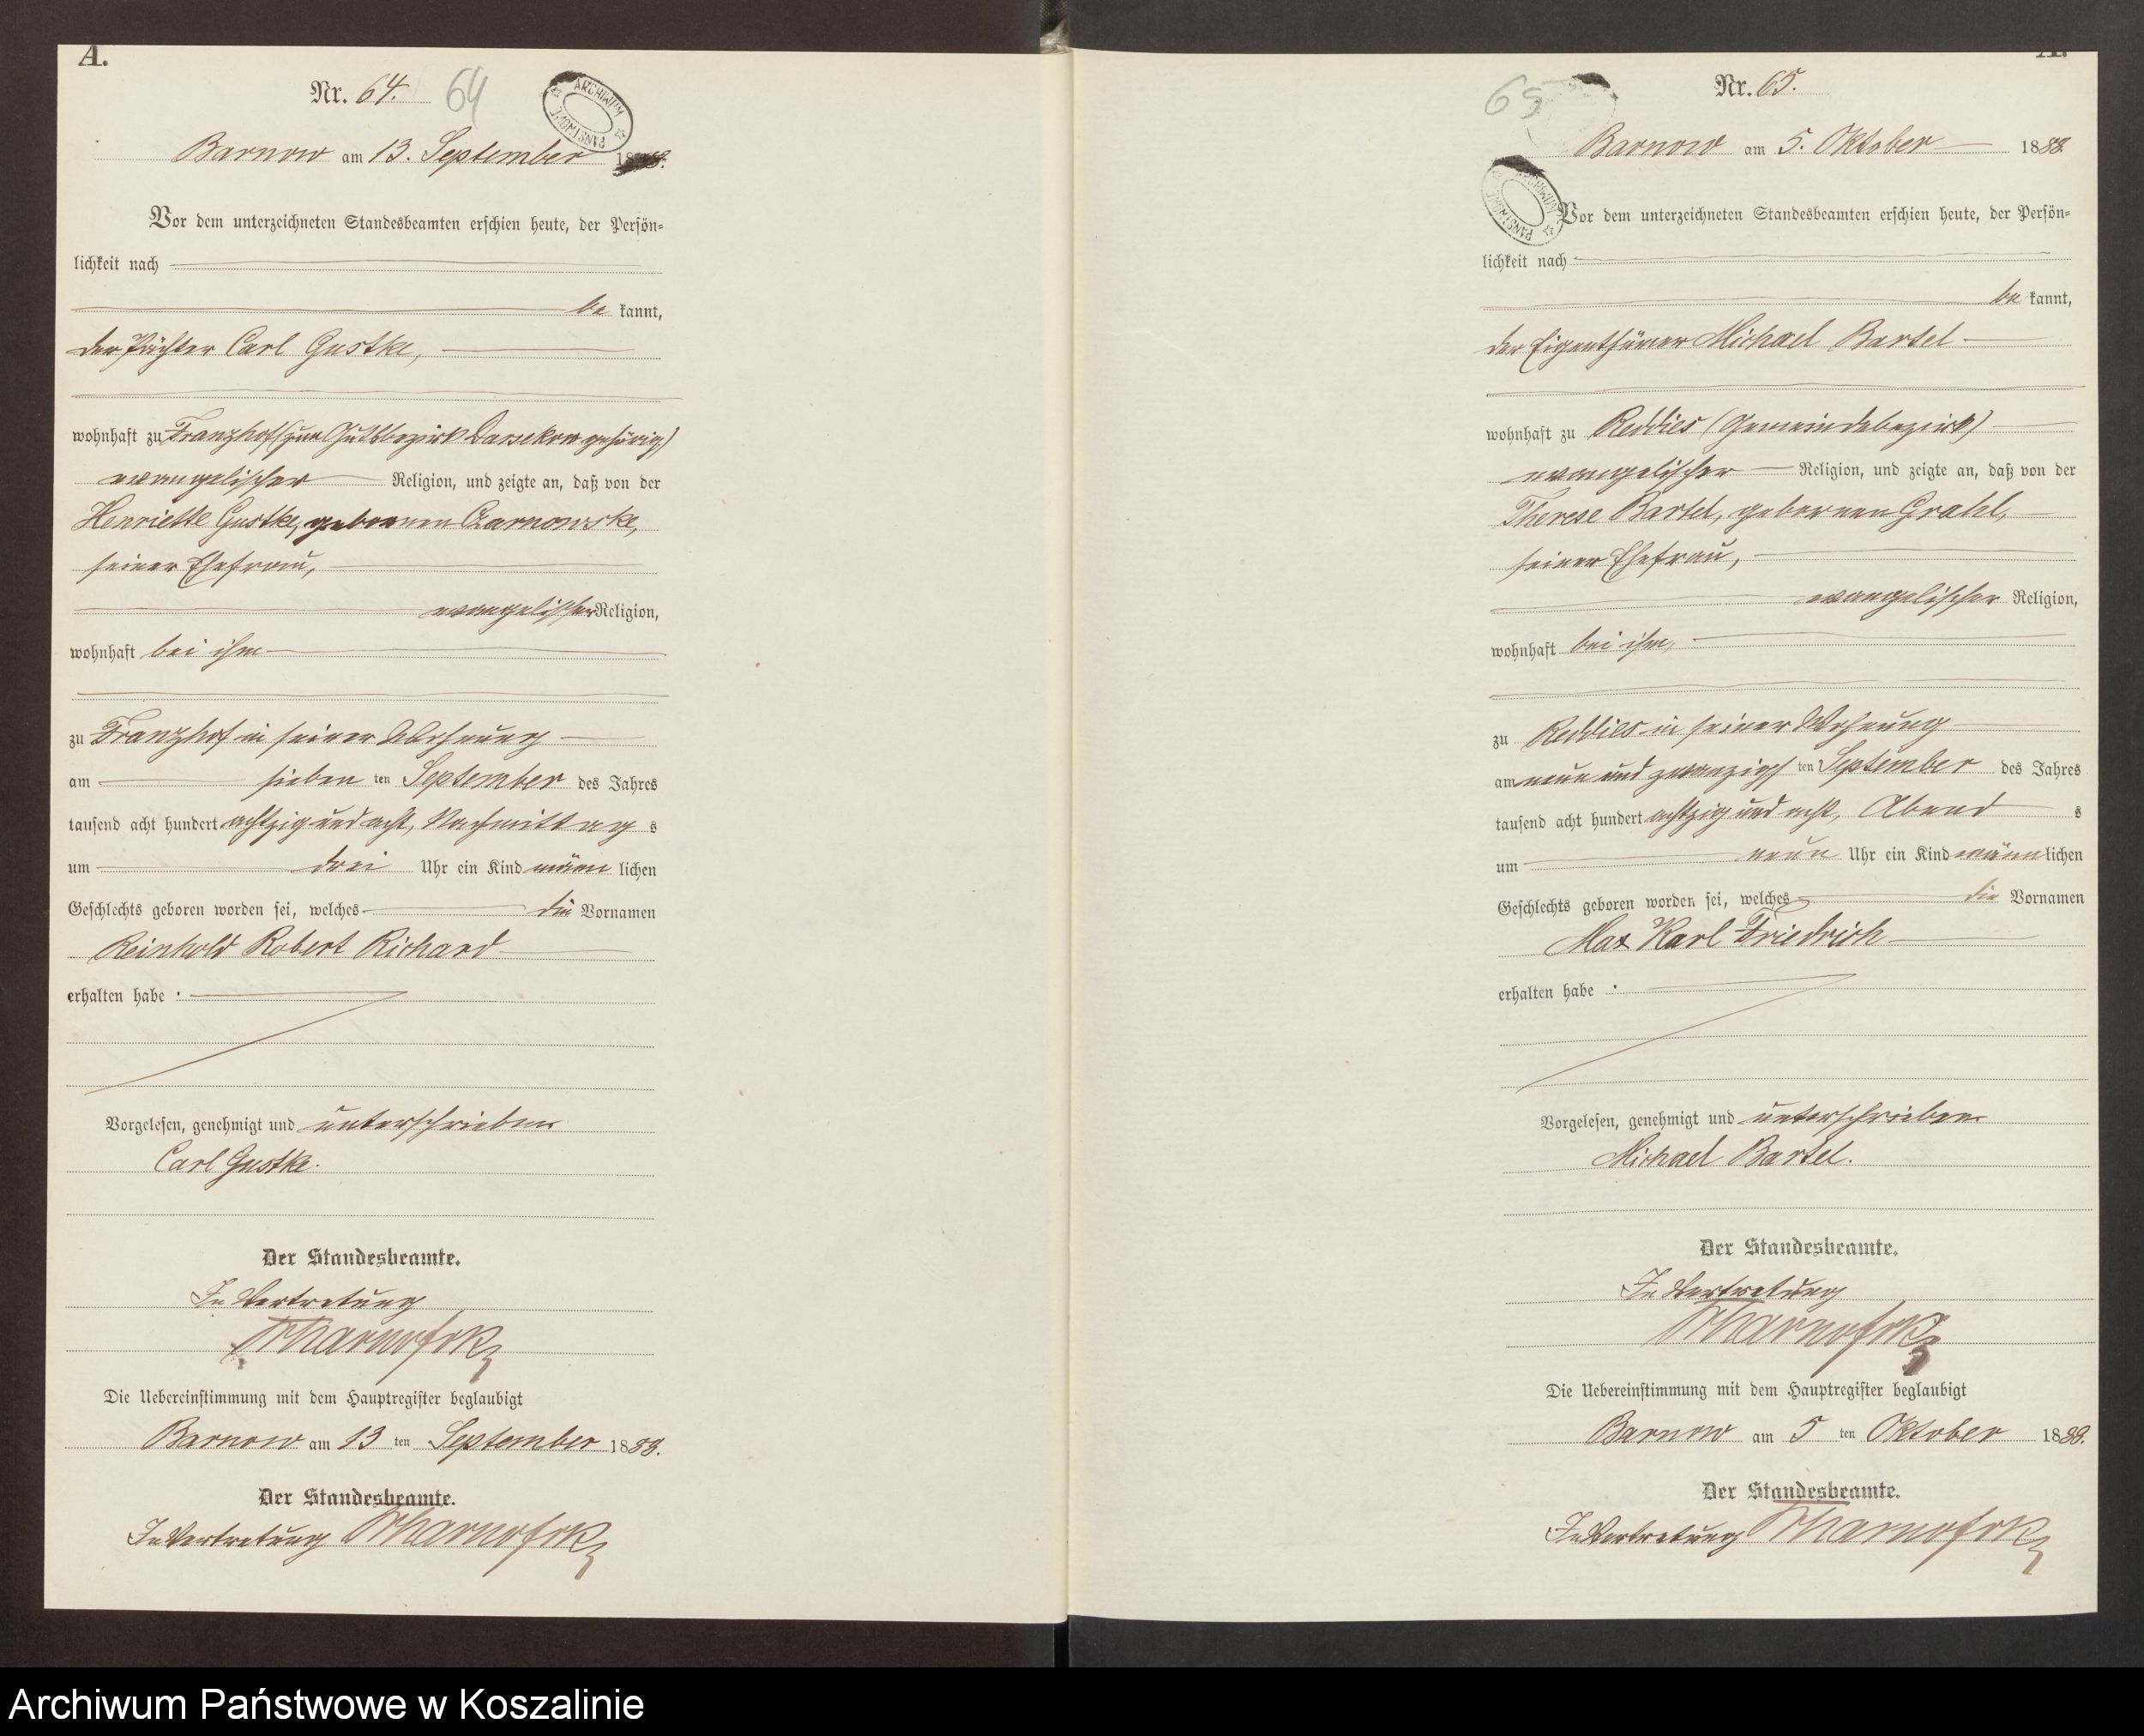 A.
Nr. 64. 64
ARCHIWUM PAŃSTWOWE
Barnow am 13. September 1888.
Vor dem unterzeichneten Standesbeamten erschien heute, der Persön-
lichkeit nach
be kannt,
der Pächter Carl Gustke,
wohnhaft zu Franzhof (zum Gutsbezirk Darsekow gehörig)
evangelischer Religion, und zeigte an, daß von der
Henriette Gustke, geborenen Czarnowske,
seiner Ehefrau,
evangelischer Religion,
wohnhaft bei ihm
zu Franzhof in seiner Wohnung
am sieben ten September des Jahres
tausend acht hundert achtzig und acht, Nachmittag s
um drei Uhr ein Kind männ lichen
Geschlechts geboren worden sei, welches die Vornamen
Reinhold Robert Richard
erhalten habe.
Vorgelesen, genehmigt und unterschrieben
Carl Gustke.
Der Standesbeamte.
In Vertretung
Die Uebereinstimmung mit dem Hauptregister beglaubigt
Barnow am 13 ten September 1888.
Der Standesbeamte.
In Vertretung
A.
65 Nr. 65.
Barnow am 5. Oktober 1888.
ARCHIWUM PAŃSTWOWE
Vor dem unterzeichneten Standesbeamten erschien heute, der Persön-
lichkeit nach
be kannt,
der Eigenthümer Michael Bartel
wohnhaft zu Reddies (Gemeindebezirk)
evangelischer Religion, und zeigte an, daß von der
Therese Bartel, geborenen Grahl,
seiner Ehefrau,
evangelischer Religion,
wohnhaft bei ihm,
zu Reddies in seiner Wohnung
am neun und zwanzigs ten September des Jahres
tausend acht hundert achtzig und acht, Abend s
um neun Uhr ein Kind männ lichen
Geschlechts geboren worden sei, welches die Vornamen
Max Karl Friedrich
erhalten habe.
Vorgelesen, genehmigt und unterschrieben
Michael Bartel.
Der Standesbeamte.
In Vertretung
Die Uebereinstimmung mit dem Hauptregister beglaubigt
Barnow am 5 ten Oktober 1888.
Der Standesbeamte.
In Vertretung
Archiwum Państwowe w Koszalinie